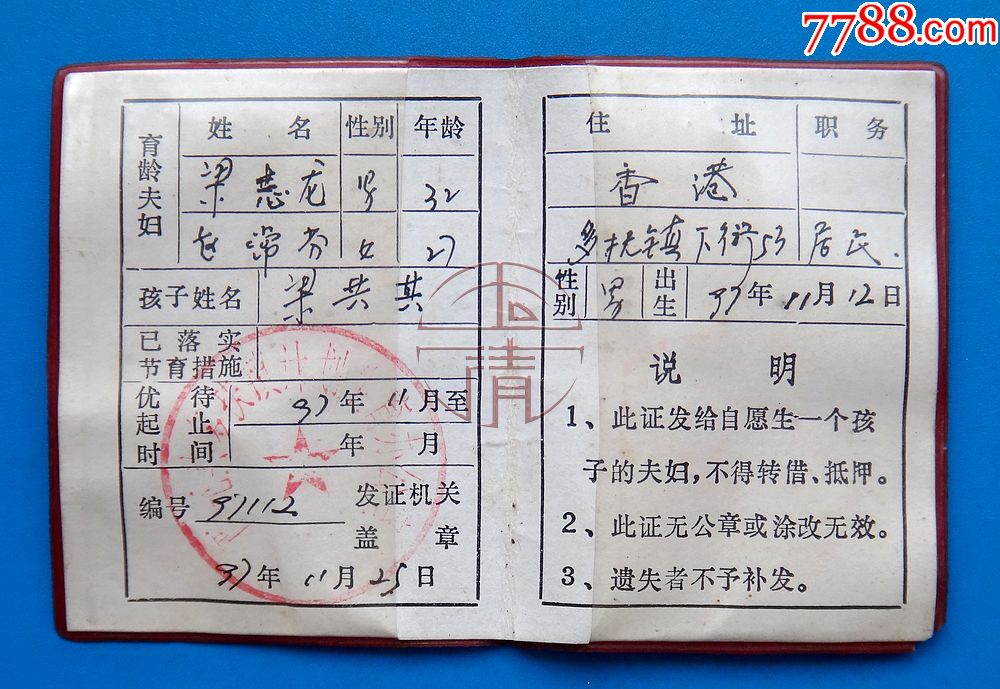 7788.com
育龄夫妇
姓 名 性别 年龄
梁志龙 男 32
赵常芬 女 27
孩子姓名 梁共其
已落实
节育措施
优待
起止
时间
97年11月至
年 月
编号 97112
发证机关
盖 章
97年11月25日
住 址 职 务
香港
多扶镇下街53 居民.
性别 男 出生 97年11月12日
说 明
1、此证发给自愿生一个孩
子的夫妇，不得转借、抵押。
2、此证无公章或涂改无效。
3、遗失者不予补发。